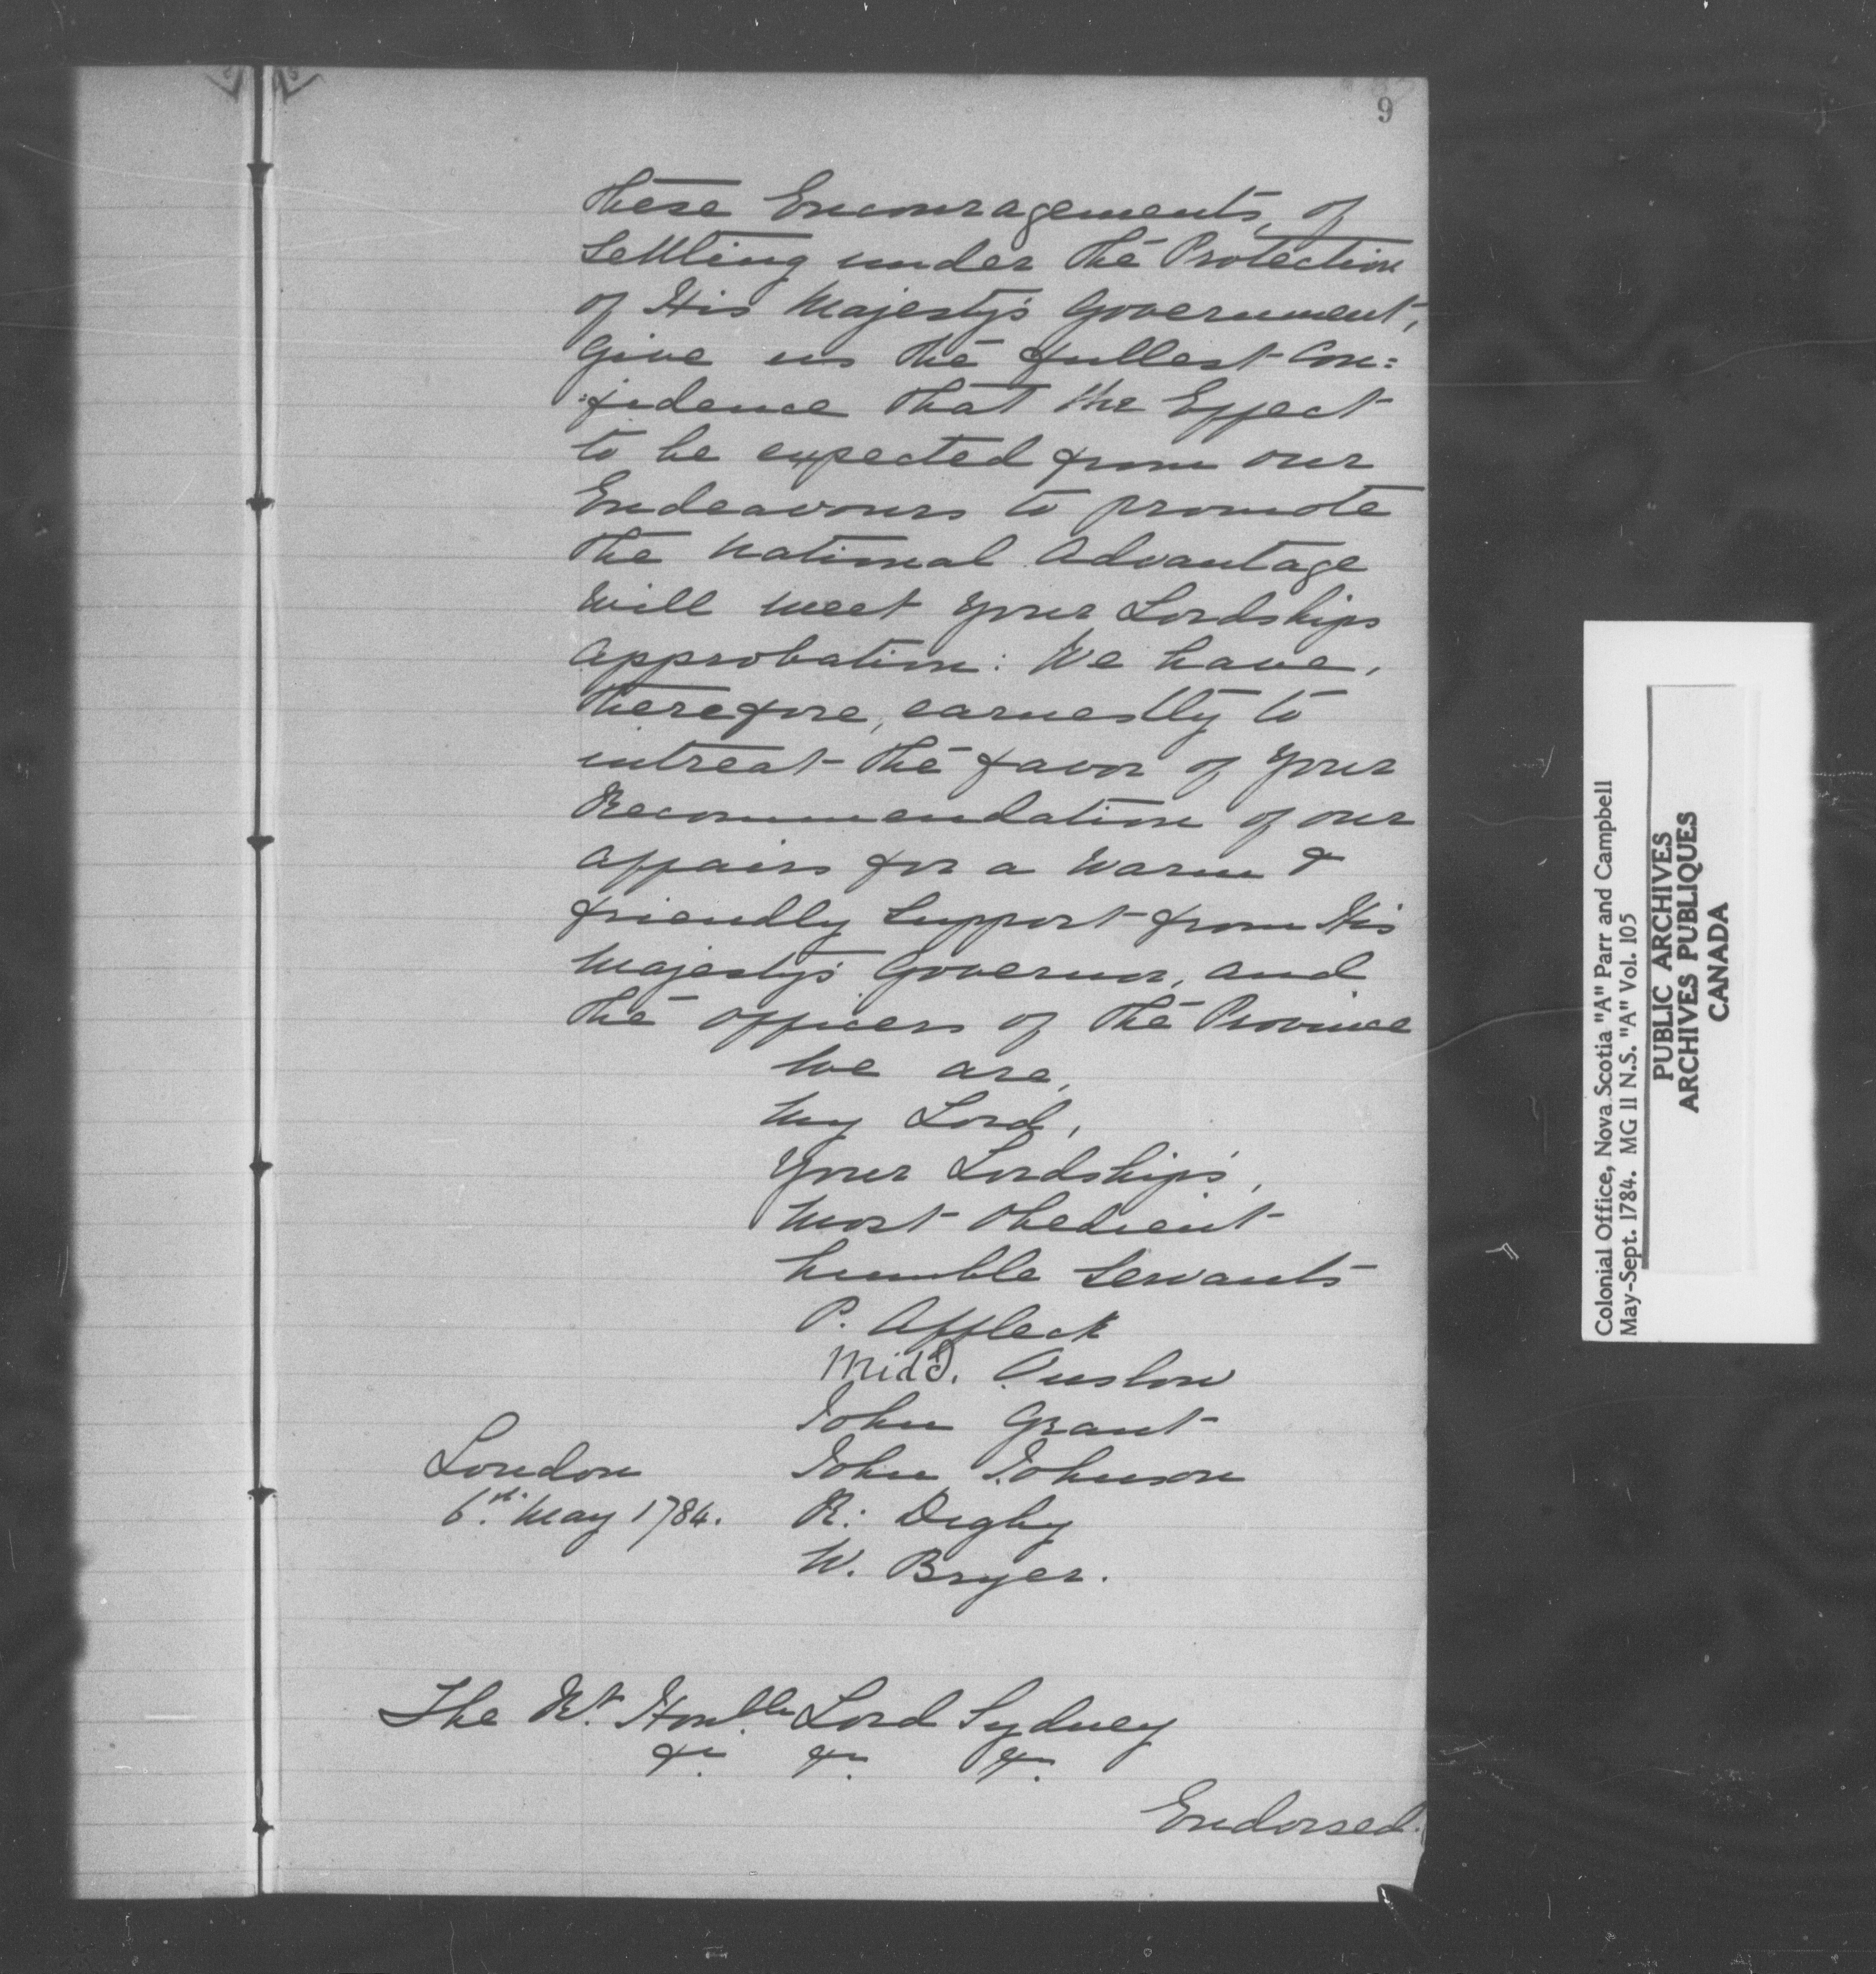 9
these Encouragements, of
settling under the Protection
of His Majesty's Government,
Give us the fullest Con=
:fidence that the Effect
to be expected from our
Endeavours to promote
the National Advantage
will meet your Lordships
Approbation: We have,
therefore, earnestly to
intreat the favor of your
Recommendation of our
affairs for a warm &
friendly support from His
Majesty's Governor, and
the officers of the Province
We are,
My Lord,
Your Lordship's,
Most Obedient
humble Servants
P. Affleck
Midd. Onslow
John Grant
John Johnson
R: Digby
W. Bryer.
London
6th. May 1784.
The Rt. Honble. Lord Sydney
&c. &c. &c.
Endorsed.
Colonial Office, Nova Scotia "A" Parr and Campbell
May-Sept. 1784. MG 11 N.S. "A" Vol. 105
PUBLIC ARCHIVES
ARCHIVES PUBLIQUES
CANADA